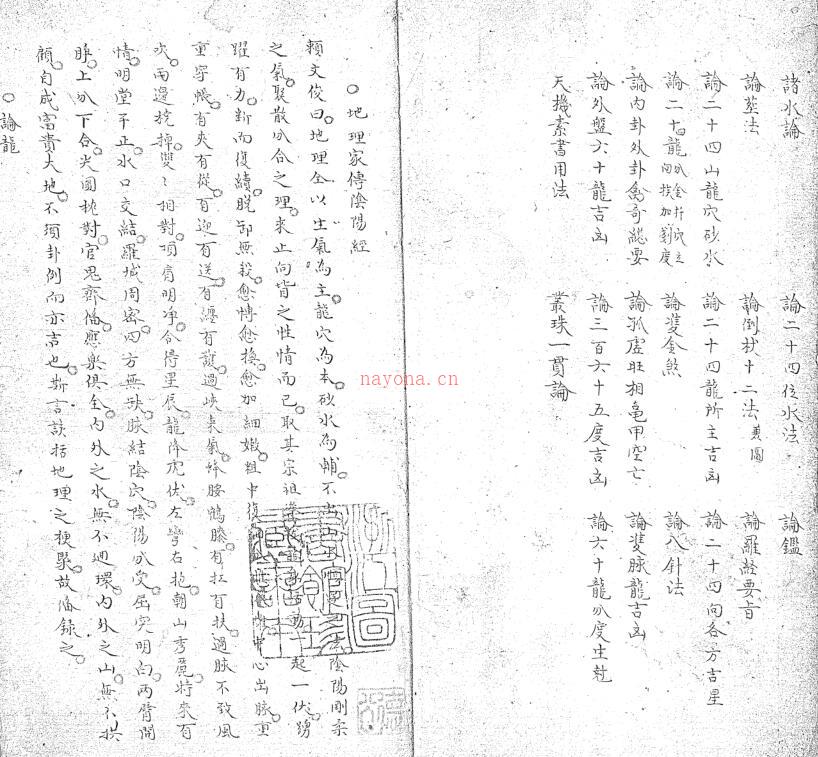 諸水論 論二十四位水法 論鑑
論葬法 論倒杖十二法 兼圖 論羅經要旨
論二十四山龍穴砂水 論二十四龍所主吉凶 論二十四向各方吉星
論二十龍分金 論雙金煞 論八針法
論内卦外卦禽奇總要 論孤虛旺相龜甲空亡 論雙脉龍吉凶
論外盤六十龍吉凶 論三百六十五度吉凶 論六十龍分度生尅
天機素書用法 叢珠一貫論
地理家傳陰陽經
賴文俊曰地理全以生氣為主龍穴為本砂水為輔不出 陰陽剛柔
之氣聚散分合之理來止向背之性情而已取其宗祖 動一起一伏踴
躍有力斷而復續脫卸無殺愈博愈換愈加細嫩粗中復 中心出脉重
重穿帳有夾有從有迎有送有纏有護過峽束氣蜂腰鶴膝有扛有扶過脉不致風
吹兩邊橈掉雙々相對項肩明净合得星辰龍降虎伏左彎右抱朝山秀麗特來有
情明堂平正水口交結羅城周密四方無缺脉結陰穴陰陽分受屈突明白兩臂開
睜上分下合尖圓枕對官鬼齊備應樂俱全内外之水無不迊環内外之山無不拱
顧自成富貴大地不須卦例而亦吉也斯言該括地理之梗槩故備錄之
論龍
nayona.cn